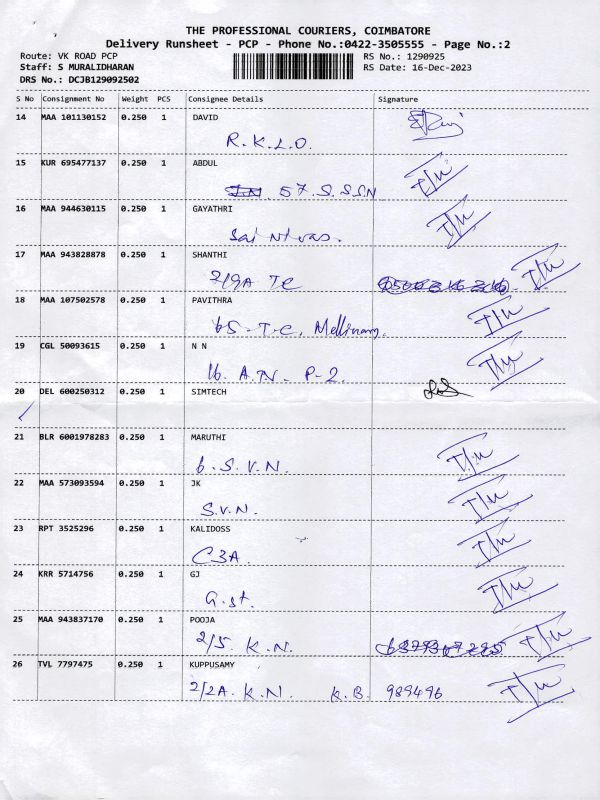 THE PROFESSIONAL COURIERS, COIMBATORE
Delivery Runsheet - PCP - Phone No.:0422-3505555 - Page No.:2
Route: VK ROAD PCP RS No.: 1290925
Staff: S MURALIDHARAN RS Date: 16-Dec-2023
DRS No.: DCJB129092502
S No Consignment No Weight PCS Consignee Details Signature
14 MAA 101130152 0.250 1 DAVID
R.K.L.O.
15 KUR 695477137 0.250 1 ABDUL
57. S.S.S.N
16 MAA 944630115 0.250 1 GAYATHRI
Sai Nivas.
17 MAA 943828878 0.250 1 SHANTHI
7/9A TC
18 MAA 107502578 0.250 1 PAVITHRA
65-T-C,
19 CGL 50093615 0.250 1 N N
16. A.N. P-2.
20 DEL 600250312 0.250 1 SIMTECH
21 BLR 6001978283 0.250 1 MARUTHI
6.S.V.N.
22 MAA 573093594 0.250 1 JK
S.V.N.
23 RPT 3525296 0.250 1 KALIDOSS
C3A.
24 KRR 5714756 0.250 1 GJ
G.st.
25 MAA 943837170 0.250 1 POOJA
2/5. K.N.
26 TVL 7797475 0.250 1 KUPPUSAMY
2/2A. K.N. K.B. 989496